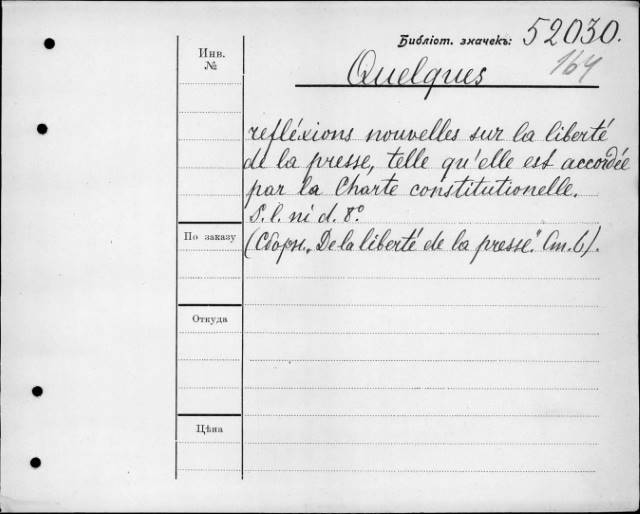 Библіот. значекъ: 52030.
164
Инв. №
Quelques
refléxions nouvelles sur la liberté
de la presse, telle qu'elle est accordée
par la Charte constitutionelle.
S. l. ni d. 8°.
По заказу
(Сборн. „De la liberté de la presse." Ст. 6).
Откуда
Цѣна